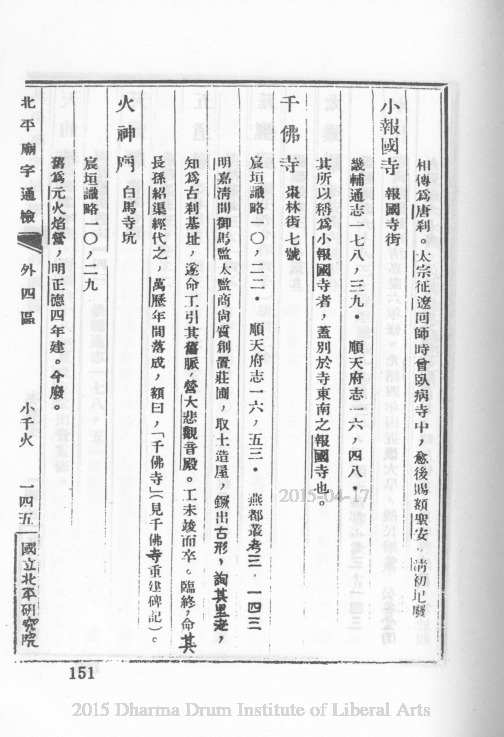 相傳爲唐刹。太宗征遼回師時曾臥病寺中，愈後賜額聖安。清初圮廢
小報國寺　報國寺街
畿輔通志一七八，三九・　順天府志一六，四八・
其所以稱爲小報國寺者，蓋別於寺東南之報國寺也。
千佛寺　棗林街七號
宸垣識略一〇，二二・　順天府志一六，五三・　燕都叢考三・一四三
明嘉淸間御馬監太監商尙質創置莊圃，取土造屋，钁出古形，詢其里老，
知爲古刹基址，遂命工引其舊脈，營大悲觀音殿。工未竣而卒。臨終，命其
長孫紹渠經代之，萬曆年間落成，額曰，「千佛寺」（見千佛寺重建碑記）。
火神廟　白馬寺坑
宸垣識略一〇，二九
舊爲元火焰營，明正德四年建。今廢。
北平廟宇通檢　外四區　小千火　一四五　國立北平硏究院
151
2015-04-17
2015 Dharma Drum Institute of Liberal Arts